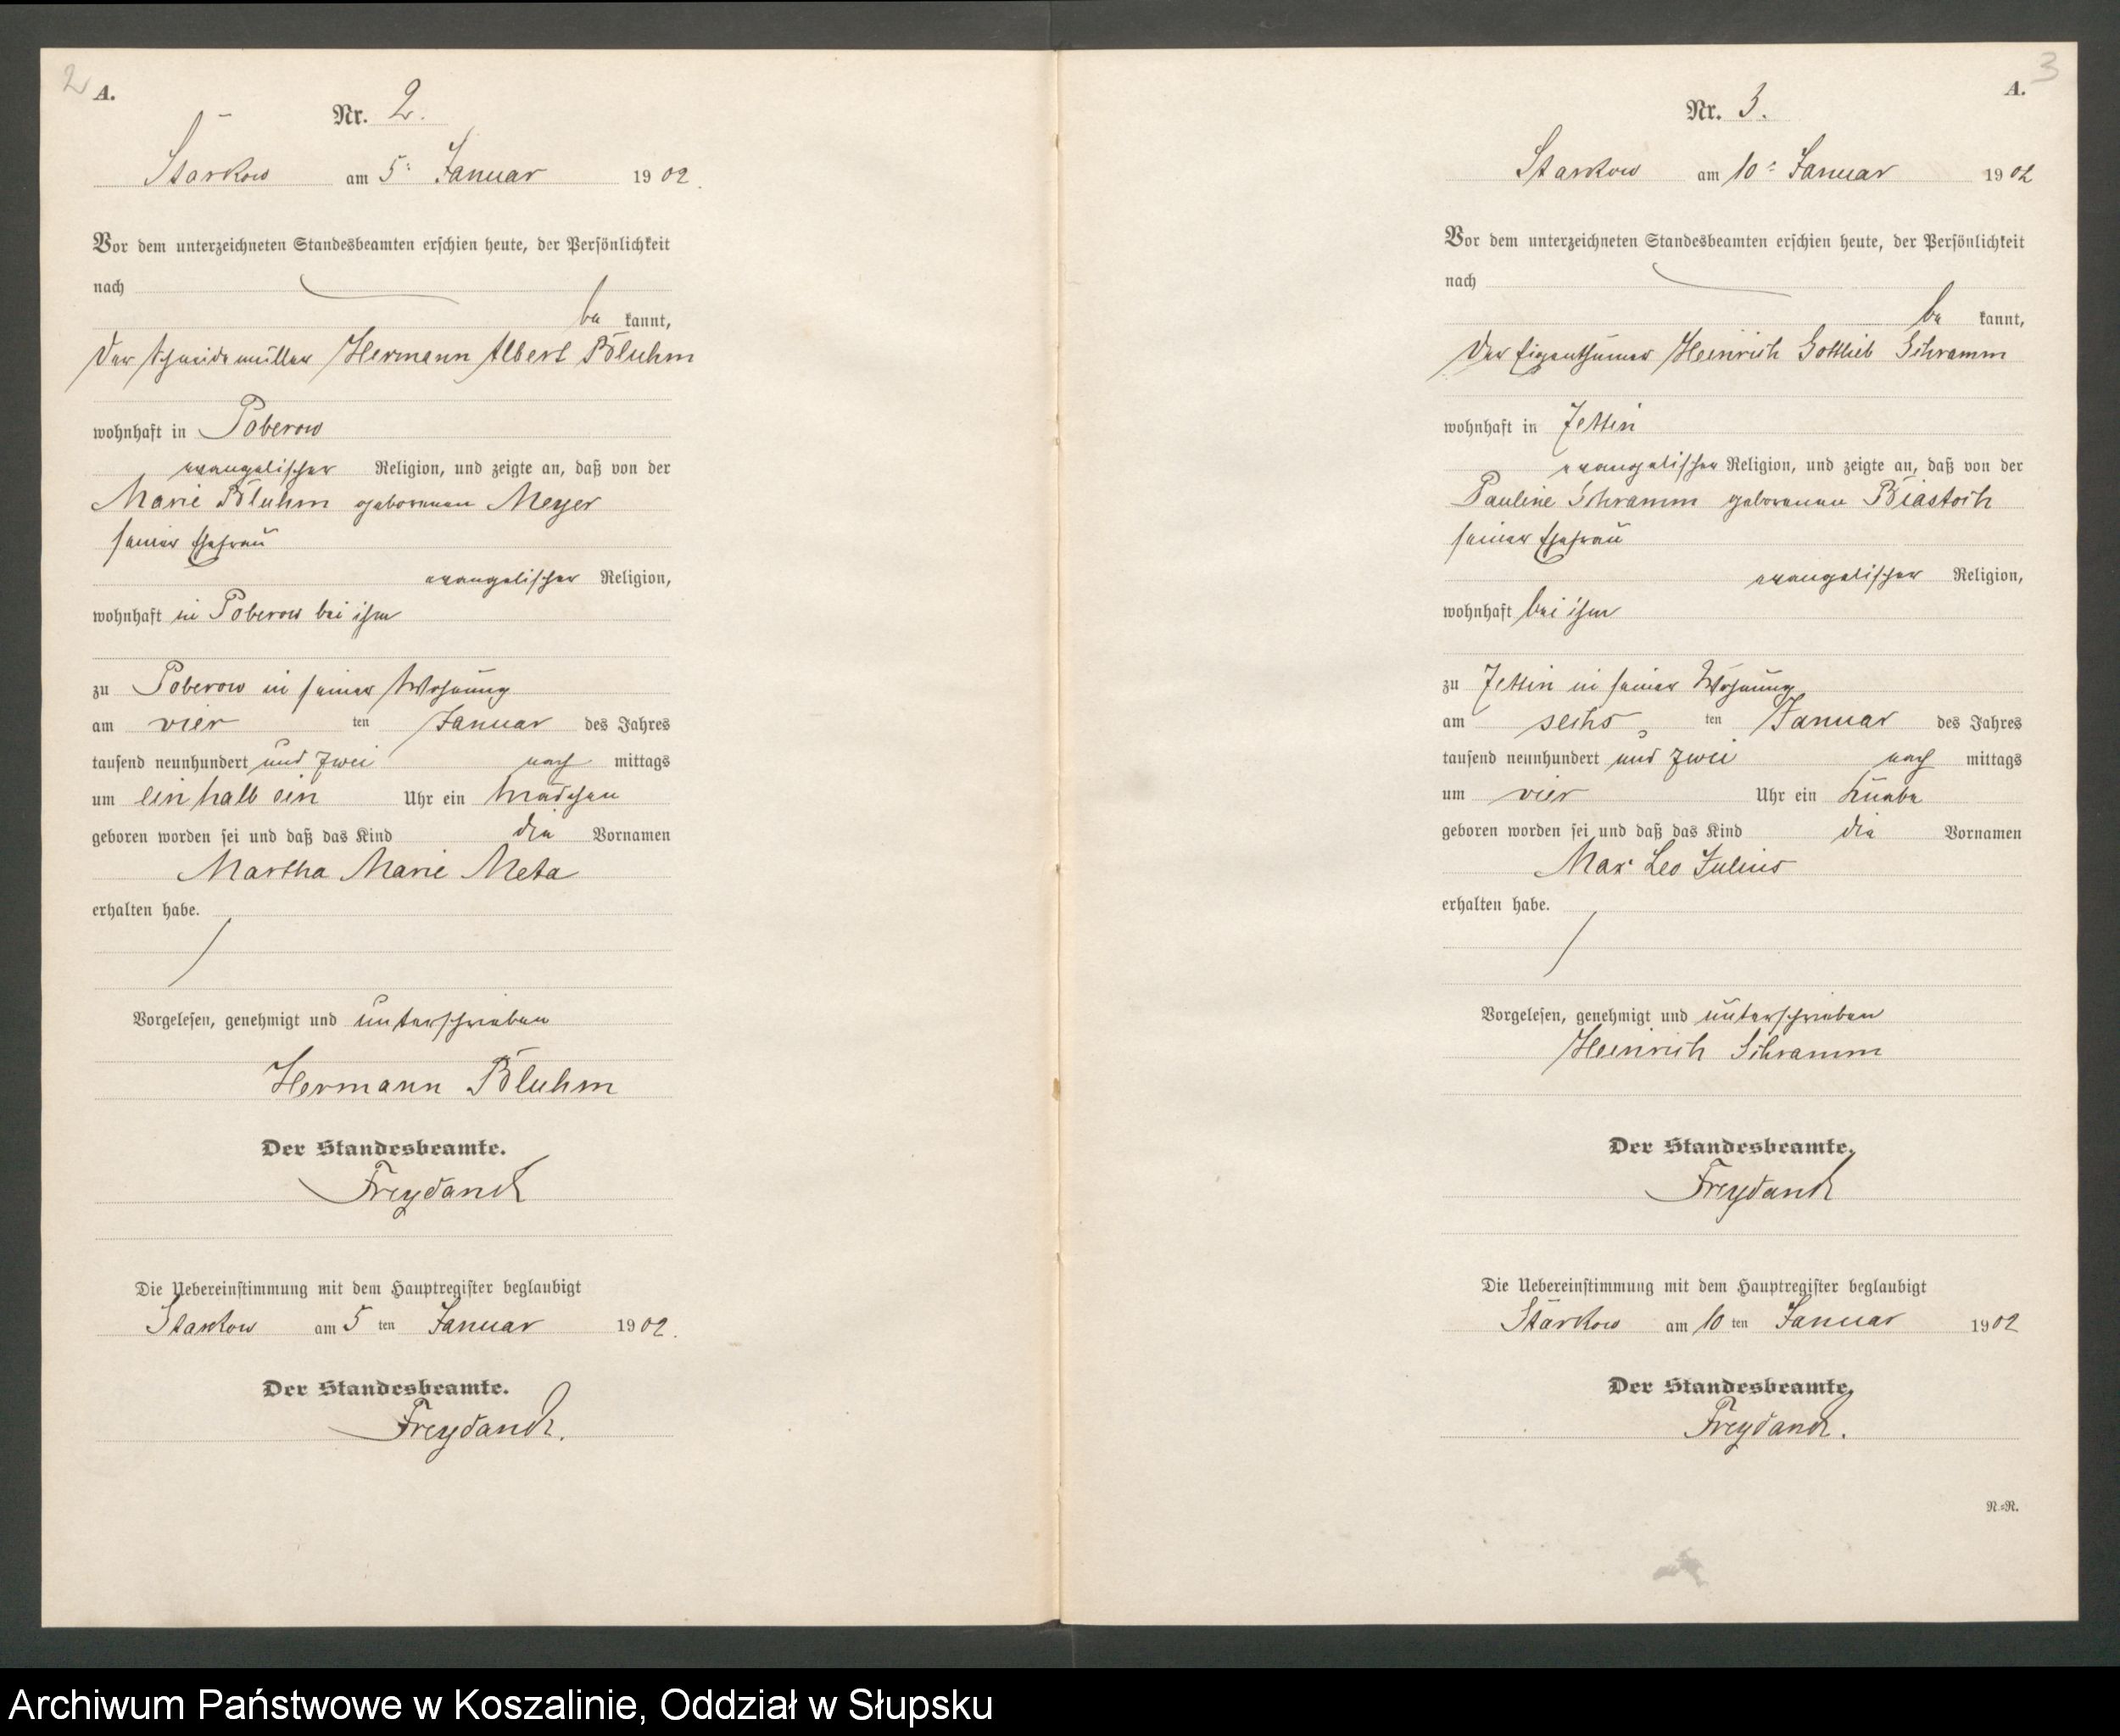 2
A.
Nr. 2.
Starkow am 5ᵗ Januar 1902.
Vor dem unterzeichneten Standesbeamten erschien heute, der Persönlichkeit
nach
be kannt,
der Schneidemüller Hermann Albert Bluhm
wohnhaft in Poberow
evangelischer Religion, und zeigte an, daß von der
Marie Bluhm geborenen Meyer
seiner Ehefrau
evangelischer Religion,
wohnhaft in Poberow bei ihm
zu Poberow in seiner Wohnung
am vier ten Januar des Jahres
tausend neunhundert und zwei nach mittags
um ein halb ein Uhr ein Mädchen
geboren worden sei und daß das Kind die Vornamen
Martha Marie Meta
erhalten habe.
Vorgelesen, genehmigt und unterschrieben
Hermann Bluhm
Der Standesbeamte.
Freydanck
Die Uebereinstimmung mit dem Hauptregister beglaubigt
Starkow am 5 ten Januar 1902.
Der Standesbeamte.
Freydanck.
3
A.
Nr. 3.
Starkow am 10ᵗ Januar 1902
Vor dem unterzeichneten Standesbeamten erschien heute, der Persönlichkeit
nach
be kannt,
der Eigenthümer Heinrich Gottlieb Schramm
wohnhaft in Jettin
evangelischer Religion, und zeigte an, daß von der
Pauline Schramm geborenen Biastoch
seiner Ehefrau
evangelischer Religion,
wohnhaft bei ihm
zu Jettin in seiner Wohnung
am sechs ten Januar des Jahres
tausend neunhundert und zwei nach mittags
um vier Uhr ein Knabe
geboren worden sei und daß das Kind die Vornamen
Max Leo Julius
erhalten habe.
Vorgelesen, genehmigt und unterschrieben
Heinrich Schramm
Der Standesbeamte.
Freydanck
Die Uebereinstimmung mit dem Hauptregister beglaubigt
Starkow am 10 ten Januar 1902
Der Standesbeamte.
Freydanck.
N.=R.
Archiwum Państwowe w Koszalinie, Oddział w Słupsku